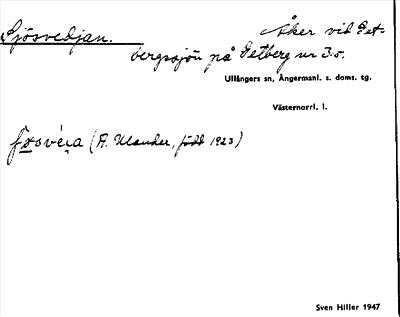 Sjösvedjan. Åker vid Get-
bergssjön på Getberg nr 3:5.
Ullångers sn, Ångermanl. s. doms. tg.
Västernorrl. l.
(A. Ulander, född 1923)
Sven Hiller 1947